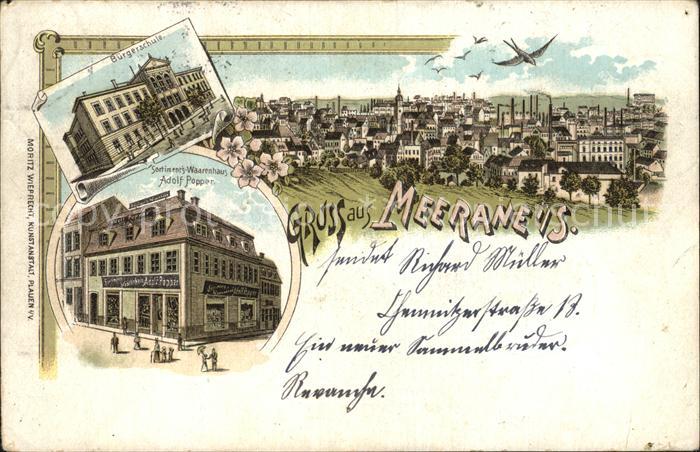 Bürgerschule.
Sortiments-Waarenhaus
Adolf Popper.
Adolf Popper
GRUSS aus MEERANE i/S.
sendet Richard Müller
Chemnitzerstraße 13.
Ein neuer Sammelbruder.
Revanche.
MORITZ WIEPRECHT, KUNSTANSTALT, PLAUEN i/V.